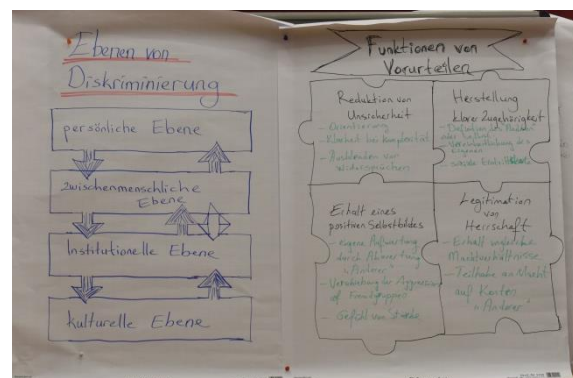 Ebenen von
Diskriminierung
persönliche Ebene
zwischenmenschliche
Ebene
Institutionelle Ebene
kulturelle Ebene
Funktionen von
Vorurteilen
Reduktion von
Unsicherheit
- Orientierung
- Klarheit bei Komplexität
- Ausblenden von
Widersprüchen
Herstellung
klarer Zugehörigkeit
- Definition des
- soziale
Erhalt eines
positiven Selbstbildes
- eigene Aufwertung
durch Abwertung
"Anderer"
- Verschiebung der Aggression
auf Fremdgruppen
- Gefühl von Stärke
Legitimation
von
Herrschaft
- Erhalt
Machtverhältnisse
- Teilhabe an Macht
auf Kosten
"Anderer"